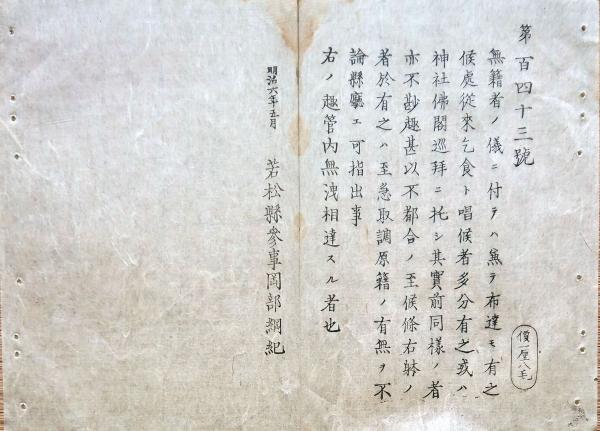 第百四十三號
無籍者ノ儀ニ付テハ兼テ布達モ有之
候處從來乞食ト唱候者多分有之或ハ
神社佛閣巡拜ニ托シ其實前同樣ノ者
亦不尠趣甚以不都合ノ至候條右躰ノ
者於有之ハ至急取調原籍ノ有無ヲ不
論縣廳エ可指出事
右ノ趣管内無洩相達スル者也
明治六年五月
若松縣參事岡部綱紀
價一厘八毛